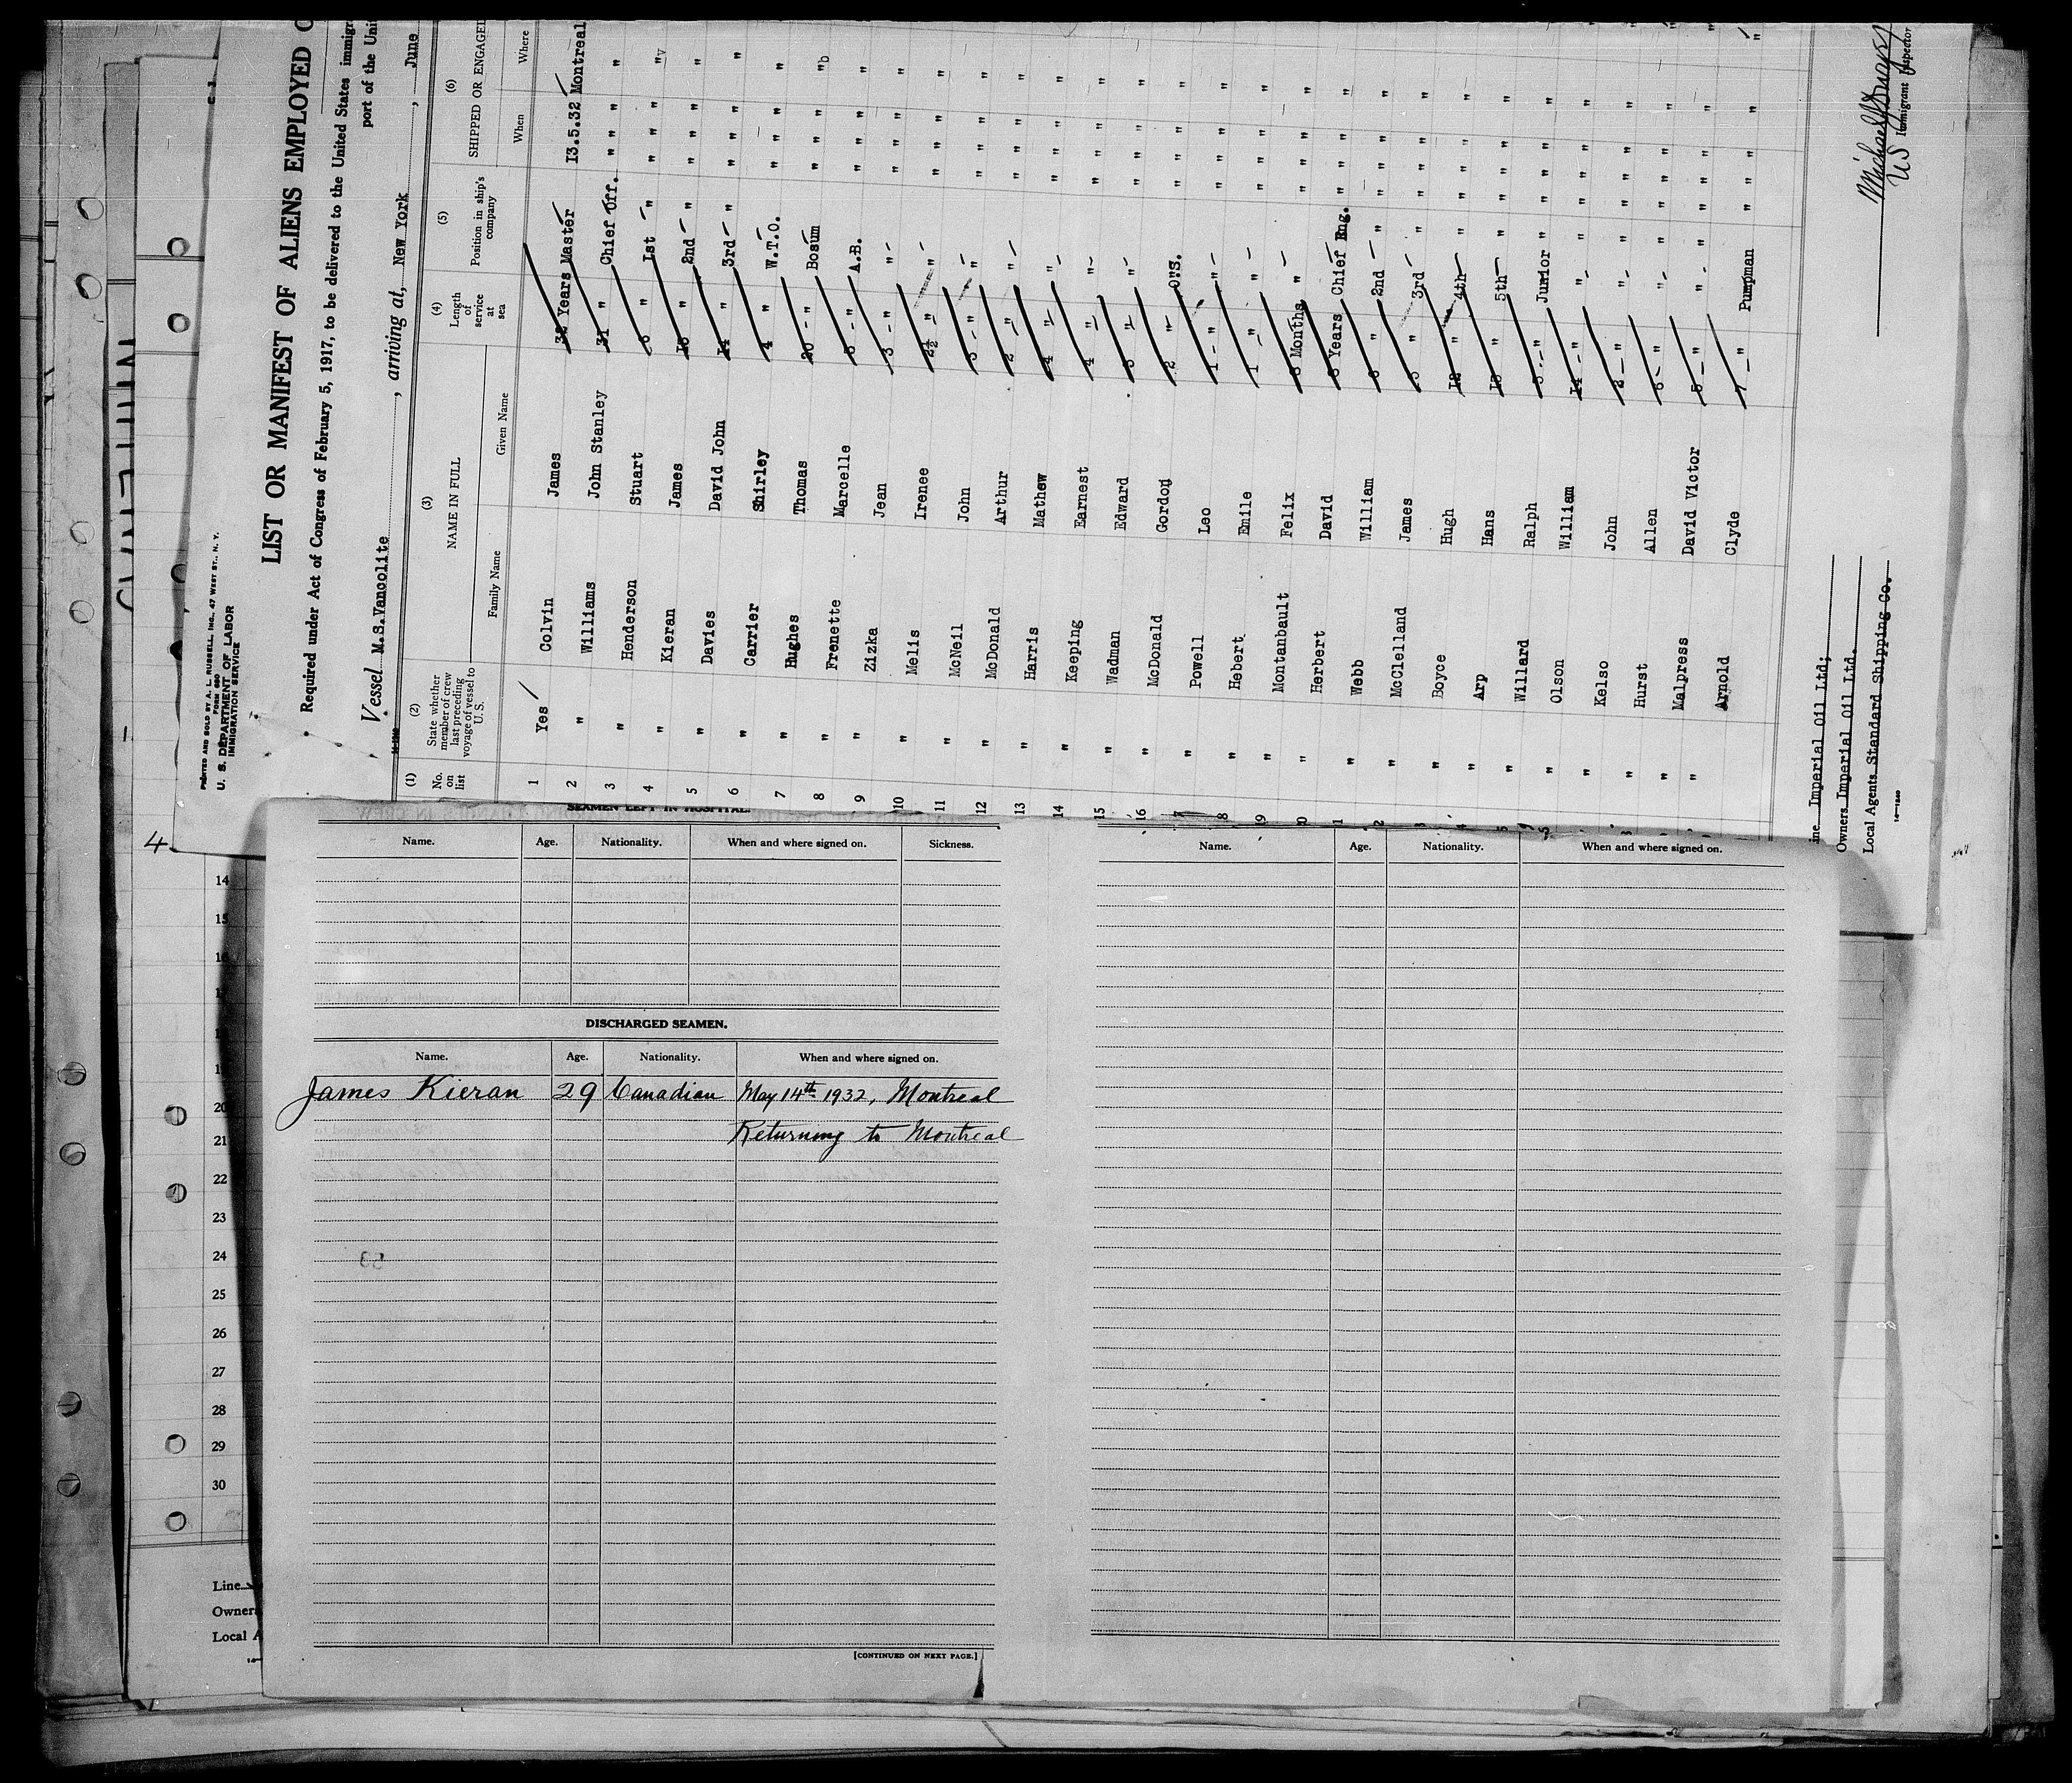 PRINTED AND SOLD BY A. L. RUSSELL, INC., 47 WEST ST., N. Y.
FORM 680
U. S. DEPARTMENT OF LABOR
IMMIGRATION SERVICE
LIST OR MANIFEST OF ALIENS EMPLOYED
Required under Act of Congress of February 5, 1917, to be delivered to the United States
port of the
Vessel M.S.Vancolite, arriving at, New York, June
(1) (2) (3) (4) (5) (6)
No. on list
State whether member of crew last preceding voyage of vessel to U.S.
NAME IN FULL
Family Name Given Name
Length of service at sea
Position in ship's company
SHIPPED OR ENGAGED
When Where
1 Yes Colvin James Years Master 13.5.32 Montreal
2 " Williams John Stanley 31 " Chief Off. " " " "
3 " Henderson Stuart 6 " 1st " " " " "
4 " Kieran James " 2nd " " " " "
5 " Davies David John " 3rd " " " " "
6 " Carrier Shirley 4 " W.T.O. " " " "
7 " Hughes Thomas 20 - " Bosum " " " "
8 " Frenette Marcelle - " A.B. " " " "
9 " Zizka Jean 3 - " " " " " "
10 " Melis Irenee 2½ - " " " " " "
11 " McNeil John - " " " " " "
12 " McDonald Arthur 2 - " " " " " "
13 " Harris Mathew 4 " " " " " "
14 " Keeping Earnest 4 - " " " " " "
15 " Wadman Edward " " " " " "
16 " McDonald Gordon 2 " O.S. " " " "
" Powell Leo 1 - " " " " " "
" Hebert Emile 1 - " " " " " "
" Montanbault Felix Months " " " " "
" Herbert David Years Chief Eng. " " " "
" Webb William " 2nd " " " " "
" McClelland James " 3rd " " " " "
" Boyce Hugh 12 " 4th " " " " "
" Arp Hans " 5th " " " " "
" Willard Ralph - " Junior " " " " "
" Olson William - " " " " " "
" Kelso John 2 - " " " " " "
" Hurst Allen 6 - " " " " " "
" Malpress David Victor - " " " " " "
Arnold Clyde 7 - " Pumpman " " " "
Imperial Oil Ltd;
Owners Imperial Oil Ltd.
Local Agents Standard Shipping Co.
US Immigrant Inspector
SEAMEN LEFT IN HOSPITAL.
Name. Age. Nationality. When and where signed on. Sickness.
DISCHARGED SEAMEN.
Name. Age. Nationality. When and where signed on.
James Kieran 29 Canadian May 14th 1932, Montreal
Returning to Montreal
[CONTINUED ON NEXT PAGE.]
Name. Age. Nationality. When and where signed on.
4
14
15
16
20
21
22
23
24
25
26
27
28
29
30
Line
Owners
Local A